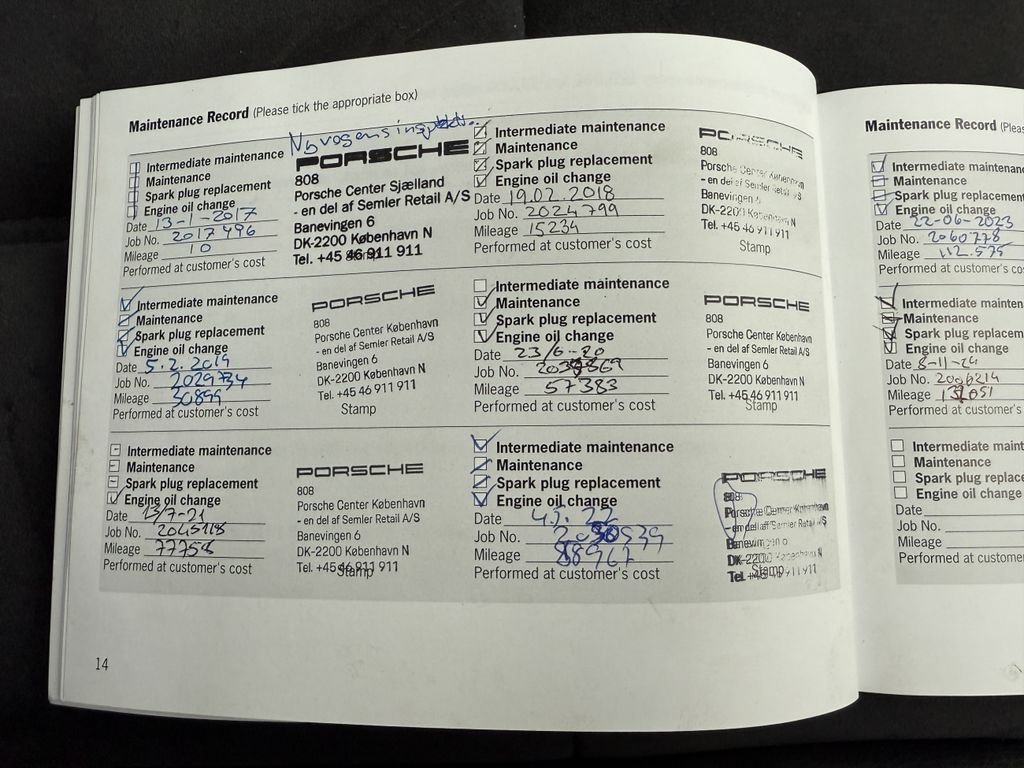 Maintenance Record (Please tick the appropriate box)
Intermediate maintenance
Maintenance
Spark plug replacement
Engine oil change
Date 13-1-2017
Job No. 2017496
Mileage 10
Performed at customer's cost
PORSCHE
808
Porsche Center Sjælland
- en del af Semler Retail A/S
Banevingen 6
DK-2200 København N
Tel. +45 46 911 911
Stamp
Intermediate maintenance
Maintenance
Spark plug replacement
Engine oil change
Date 19.02.2018
Job No. 2024799
Mileage 15234
Performed at customer's cost
PORSCHE
808
Porsche Center København
- en del af Semler Retail A/S
Banevingen 6
DK-2200 København N
Tel. +45 46 911 911
Stamp
Intermediate maintenance
Maintenance
Spark plug replacement
Engine oil change
Date 5.2.2019
Job No. 2029734
Mileage 30899
Performed at customer's cost
PORSCHE
808
Porsche Center København
- en del af Semler Retail A/S
Banevingen 6
DK-2200 København N
Tel. +45 46 911 911
Stamp
Intermediate maintenance
Maintenance
Spark plug replacement
Engine oil change
Date 23/6-20
Job No.
Mileage 57383
Performed at customer's cost
PORSCHE
808
Porsche Center København
- en del af Semler Retail A/S
Banevingen 6
DK-2200 København N
Tel. +45 46 911 911
Stamp
Intermediate maintenance
Maintenance
Spark plug replacement
Engine oil change
Date 13/7-21
Job No. 2045118
Mileage 77758
Performed at customer's cost
PORSCHE
808
Porsche Center København
- en del af Semler Retail A/S
Banevingen 6
DK-2200 København N
Tel. +45 46 911 911
Stamp
Intermediate maintenance
Maintenance
Spark plug replacement
Engine oil change
Date
Job No.
Mileage
Performed at customer's cost
PORSCHE
808
Porsche Center København
- en del af Semler Retail A/S
Banevingen 6
DK-2200 København N
Tel. +45 46 911 911
Stamp
14
Maintenance Record
Intermediate maintenance
Maintenance
Spark plug
Engine oil change
Date 22-06-2023
Job No. 2060778
Mileage 112.575
Performed at customer's
Intermediate
Maintenance
Spark plug
Engine oil change
Date 8-11-24
Job No.
Mileage
Performed at customer's
Intermediate
Maintenance
Spark plug
Engine oil change
Date
Job No.
Mileage
Performed at customer